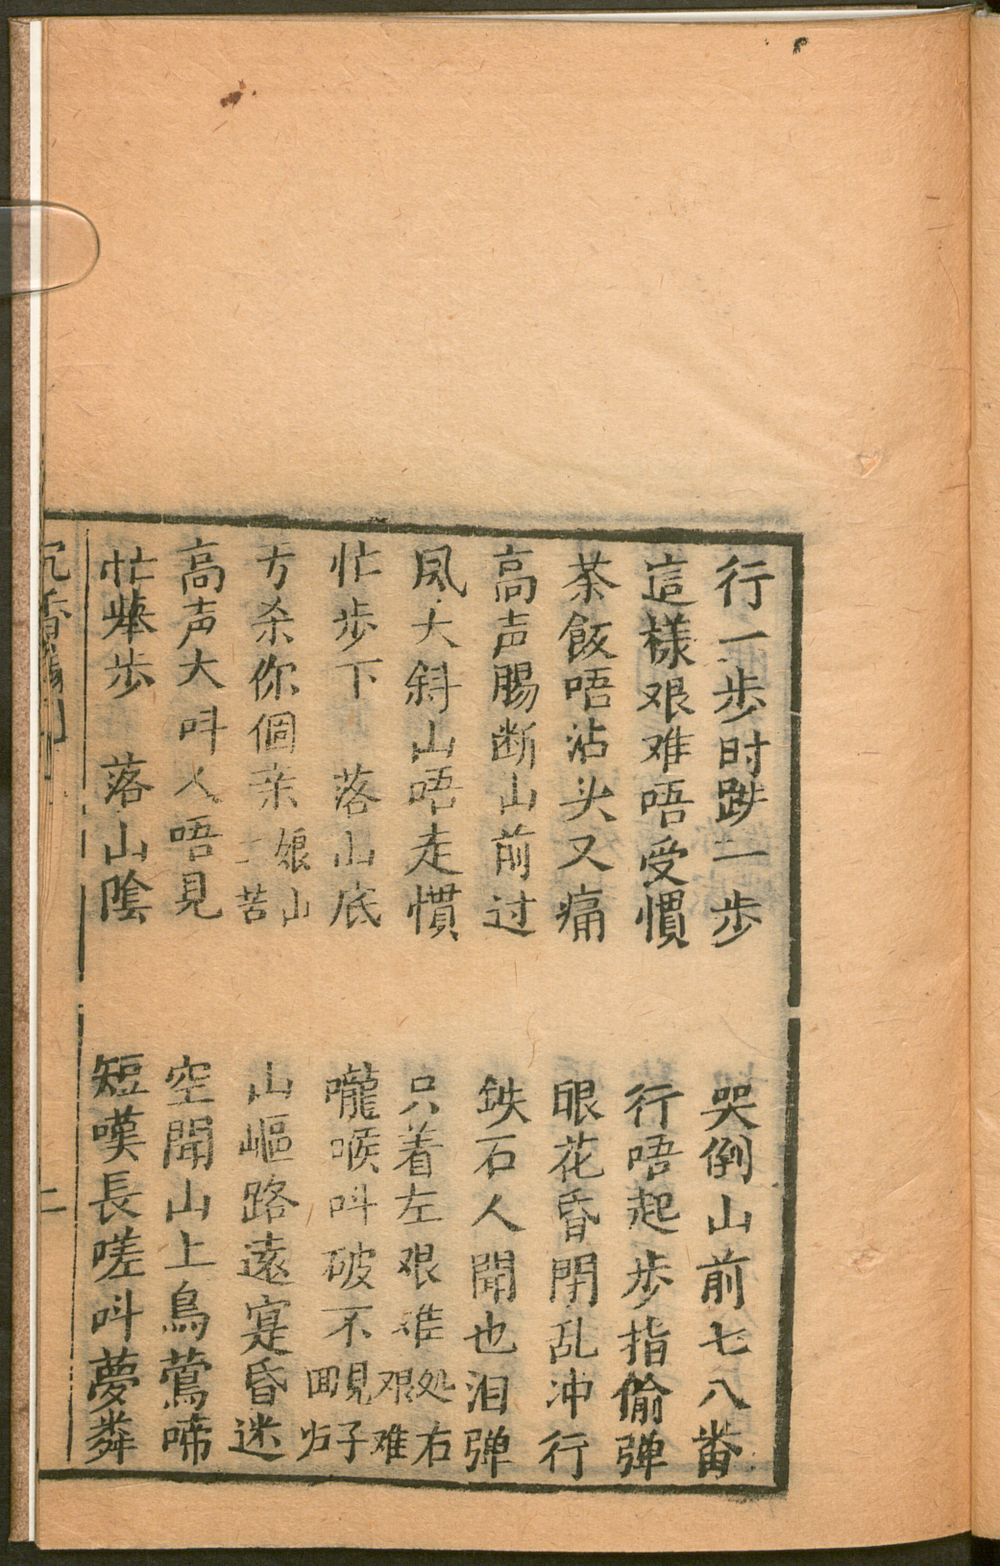 行一步时一步　哭倒山前七八畨
這樣艰难唔受慣　行唔起步指偷弹
茶飯唔沾头又痛　眼花昏閉乱冲行
高声腸断山前过　鉄石人聞也泪弹
風大斜山唔走慣　只着左艰难处右艰难
忙步下　落山底　嚨喉呌破不見子囬归
方杀你個亲娘山二苦　山嶇路遠寔昏迷
高声大呌人唔見　空聞山上鳥鶯啼
忙举步　落山陰　短嘆長嗟呌夢粦
沉香　二